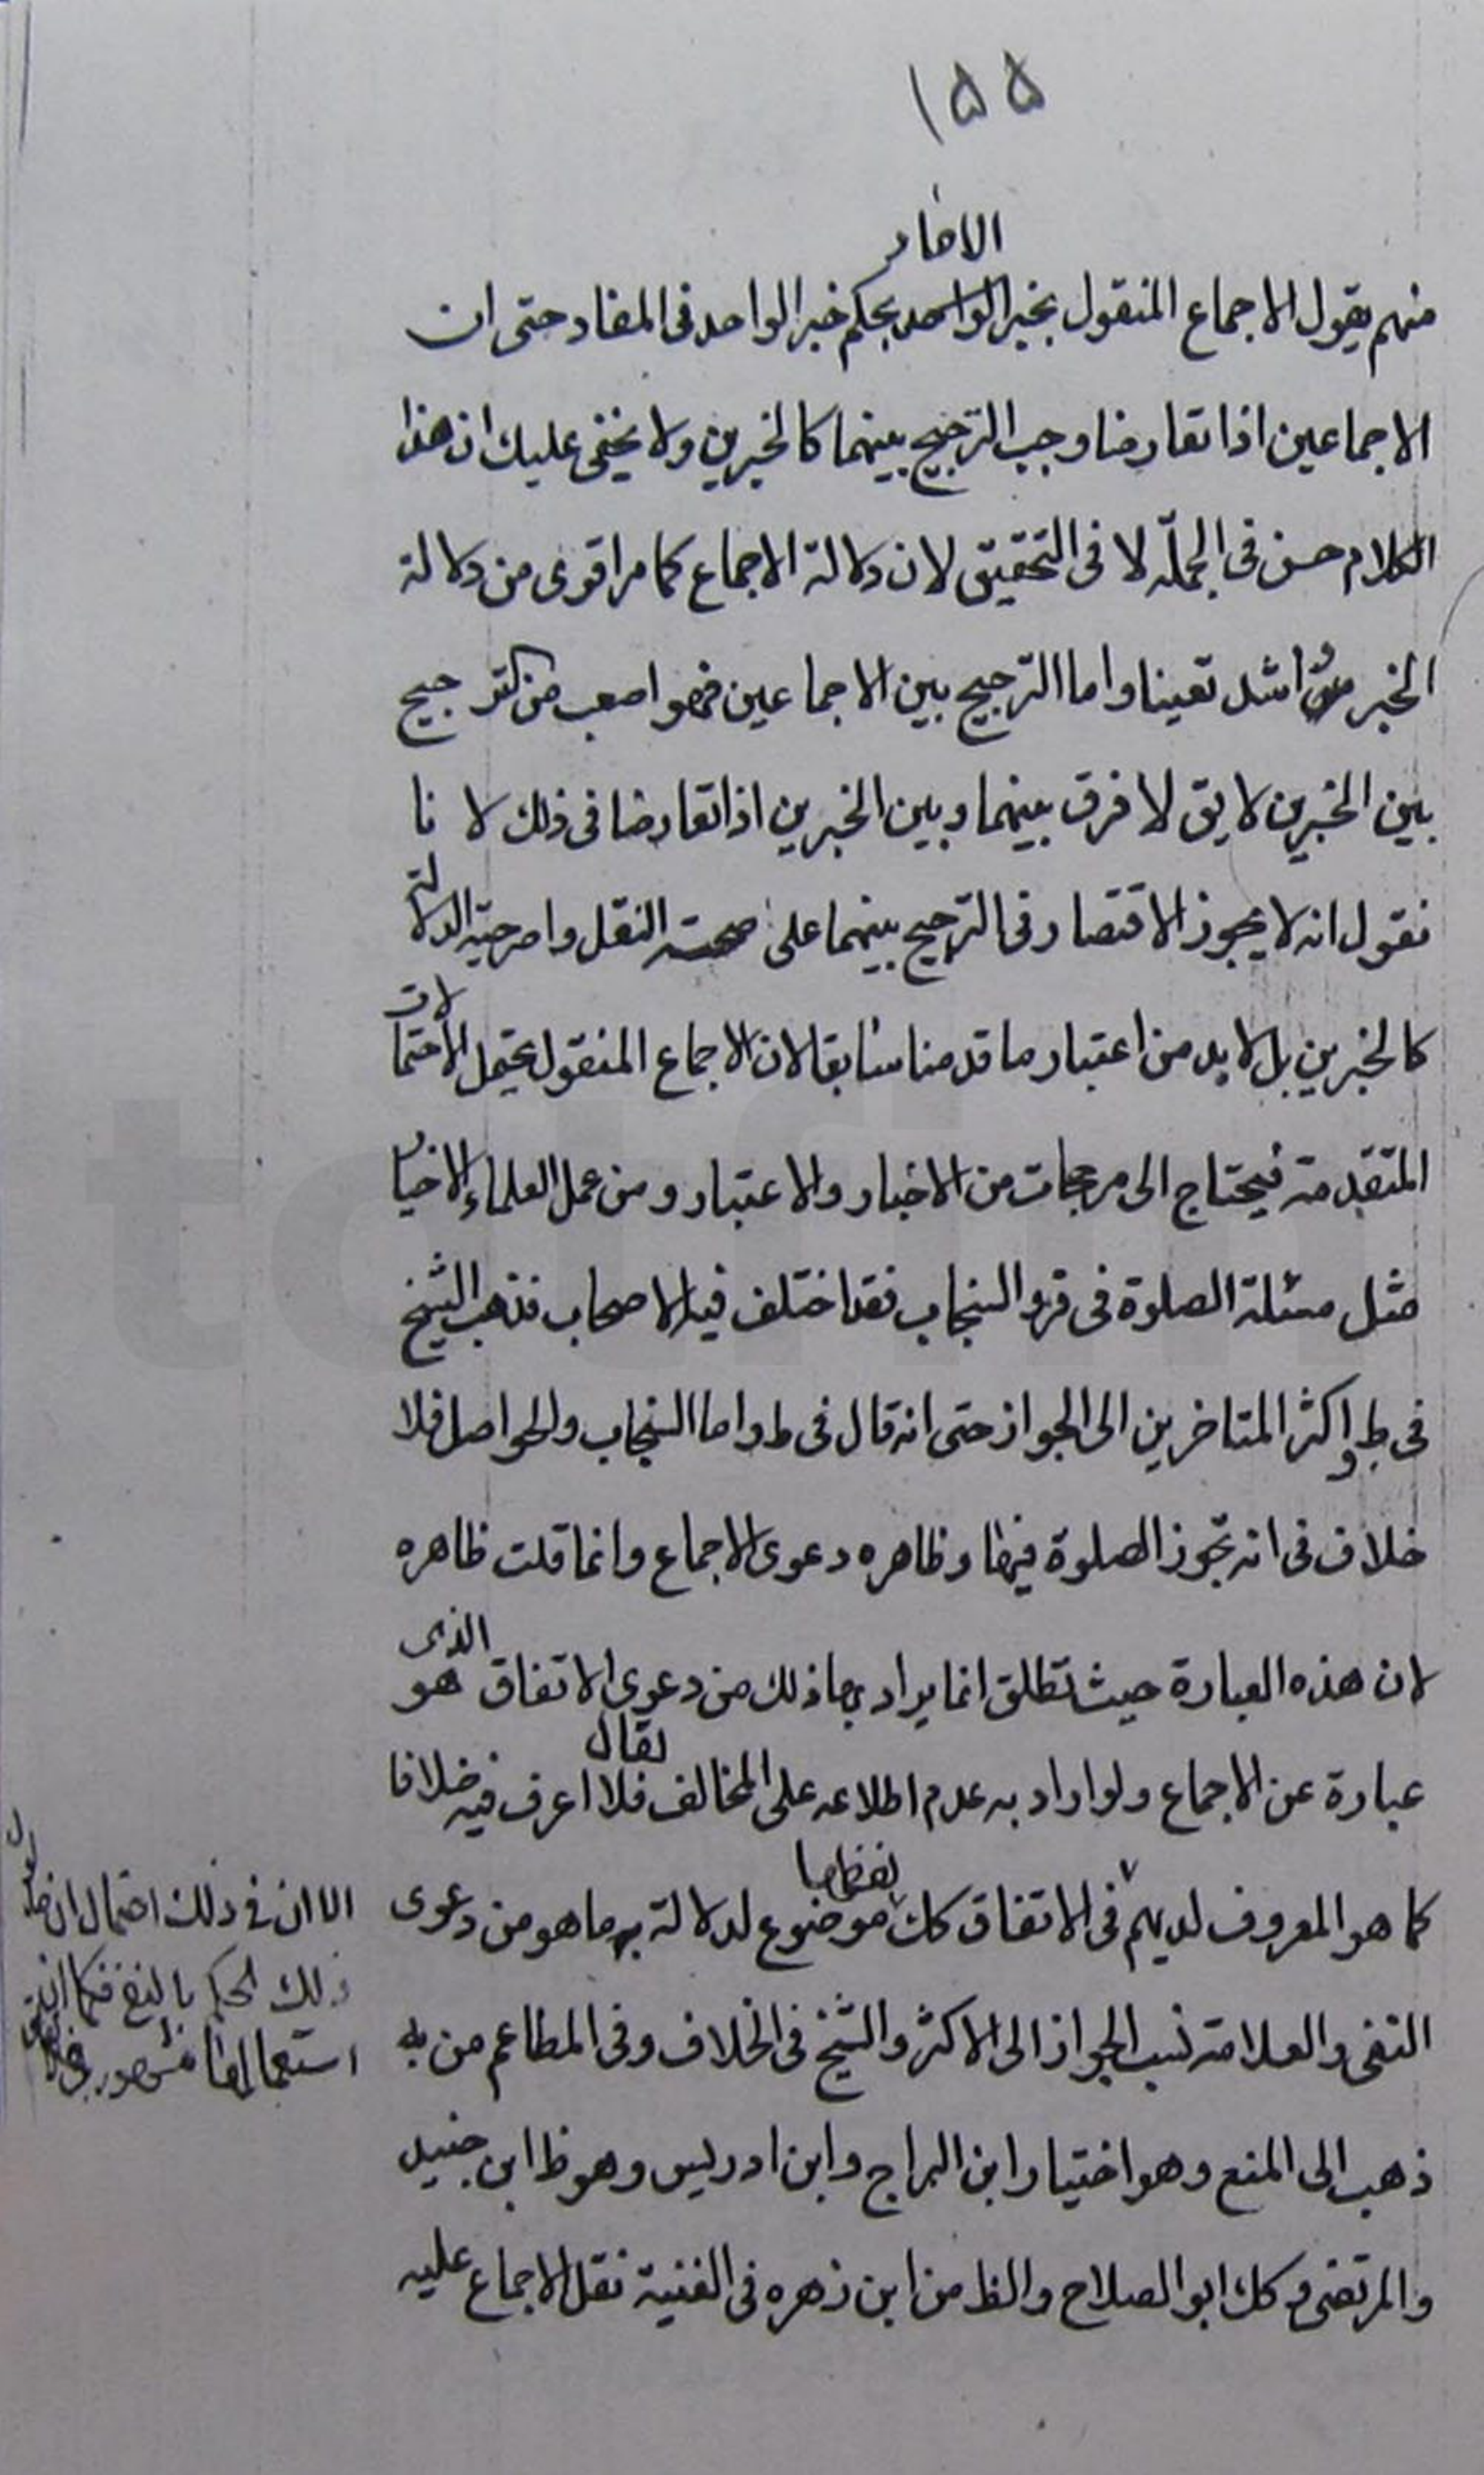 ۱۵۵
الاحاد
منهم يقول الاجماع المنقول بخبر الواحد بحكم خبر الواحد فى المفاد حتى ان
الاجماعين اذا تعارضا وجب الترجيح بينهما كالخبرين ولا يخفى عليك ان هذا
الكلام حسن فى الجملّه لا فى التحقيق لان دلالة الاجماع كما مر اقوى من دلالة
الخبر واشد تعينا واما الترجيح بين الاجماعين فهو اصعب من الترجيح
بين الخبرين لايق لا فرق بينهما وبين الخبرين اذا تعارضا فى ذلك لا نا
نقول انه لا يجوز الاقتصار فى الترجيح بينهما على صحت النقل واصرحية الدلالة
كالخبرين بل لا بد من اعتبار ما قدمنا سابقا لان الاجماع المنقول يحتمل الاحتمالات
المتقدمة فيحتاج الى مرجحات من الاخبار والاعتبار ومن عمل العلماء الاخيار
مثل مسئلة الصلوة فى فرو السنجاب فقد اختلف فيه الاصحاب فذهب الشيخ
فى ط واكثر المتاخرين الى الجواز حتى انه قال فى ط واما السنجاب والحواصل فلا
خلاف فى انه تجوز الصلوة فيها وظاهره دعوى الاجماع وانما قلت ظاهره
لان هذه العبارة حيث تطلق انما يراد بها ذلك من دعوى الاتفاق الذى هو
عبارة عن الاجماع ولو اراد به عدم اطلاعه على المخالف لقال فلا اعرف فيه خلافا
كما هو المعروف لديهم فى الاتفاق كك موضوع لدلالة به ما هو من دعوى
النفى والعلامة نسب الجواز الى الاكثر والشيخ فى الخلاف وفى المطاعم من يه
ذهب الى المنع وهو اختيار ابن البراج وابن ادريس وهو ظ ابن جنيد
والمرتضى وكك ابو الصلاح والظ من ابن زهره فى الغنية نقل الاجماع عليه
الا ان فى ذلك احتمال ان
ذلك الحكم
استعمالها مشهور